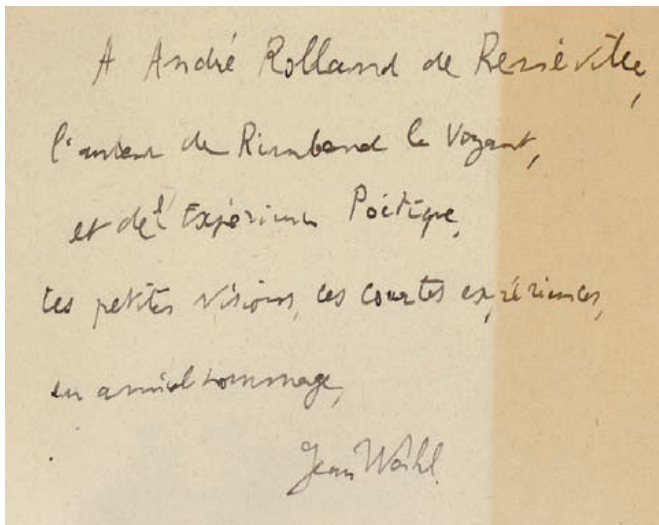 A André Rolland de Renéville,
l'auteur de Rimbaud le Voyant,
et de l'Expérience Poétique,
ces petites visions, ces courtes expériences,
en amical hommage,
Jean Wahl.